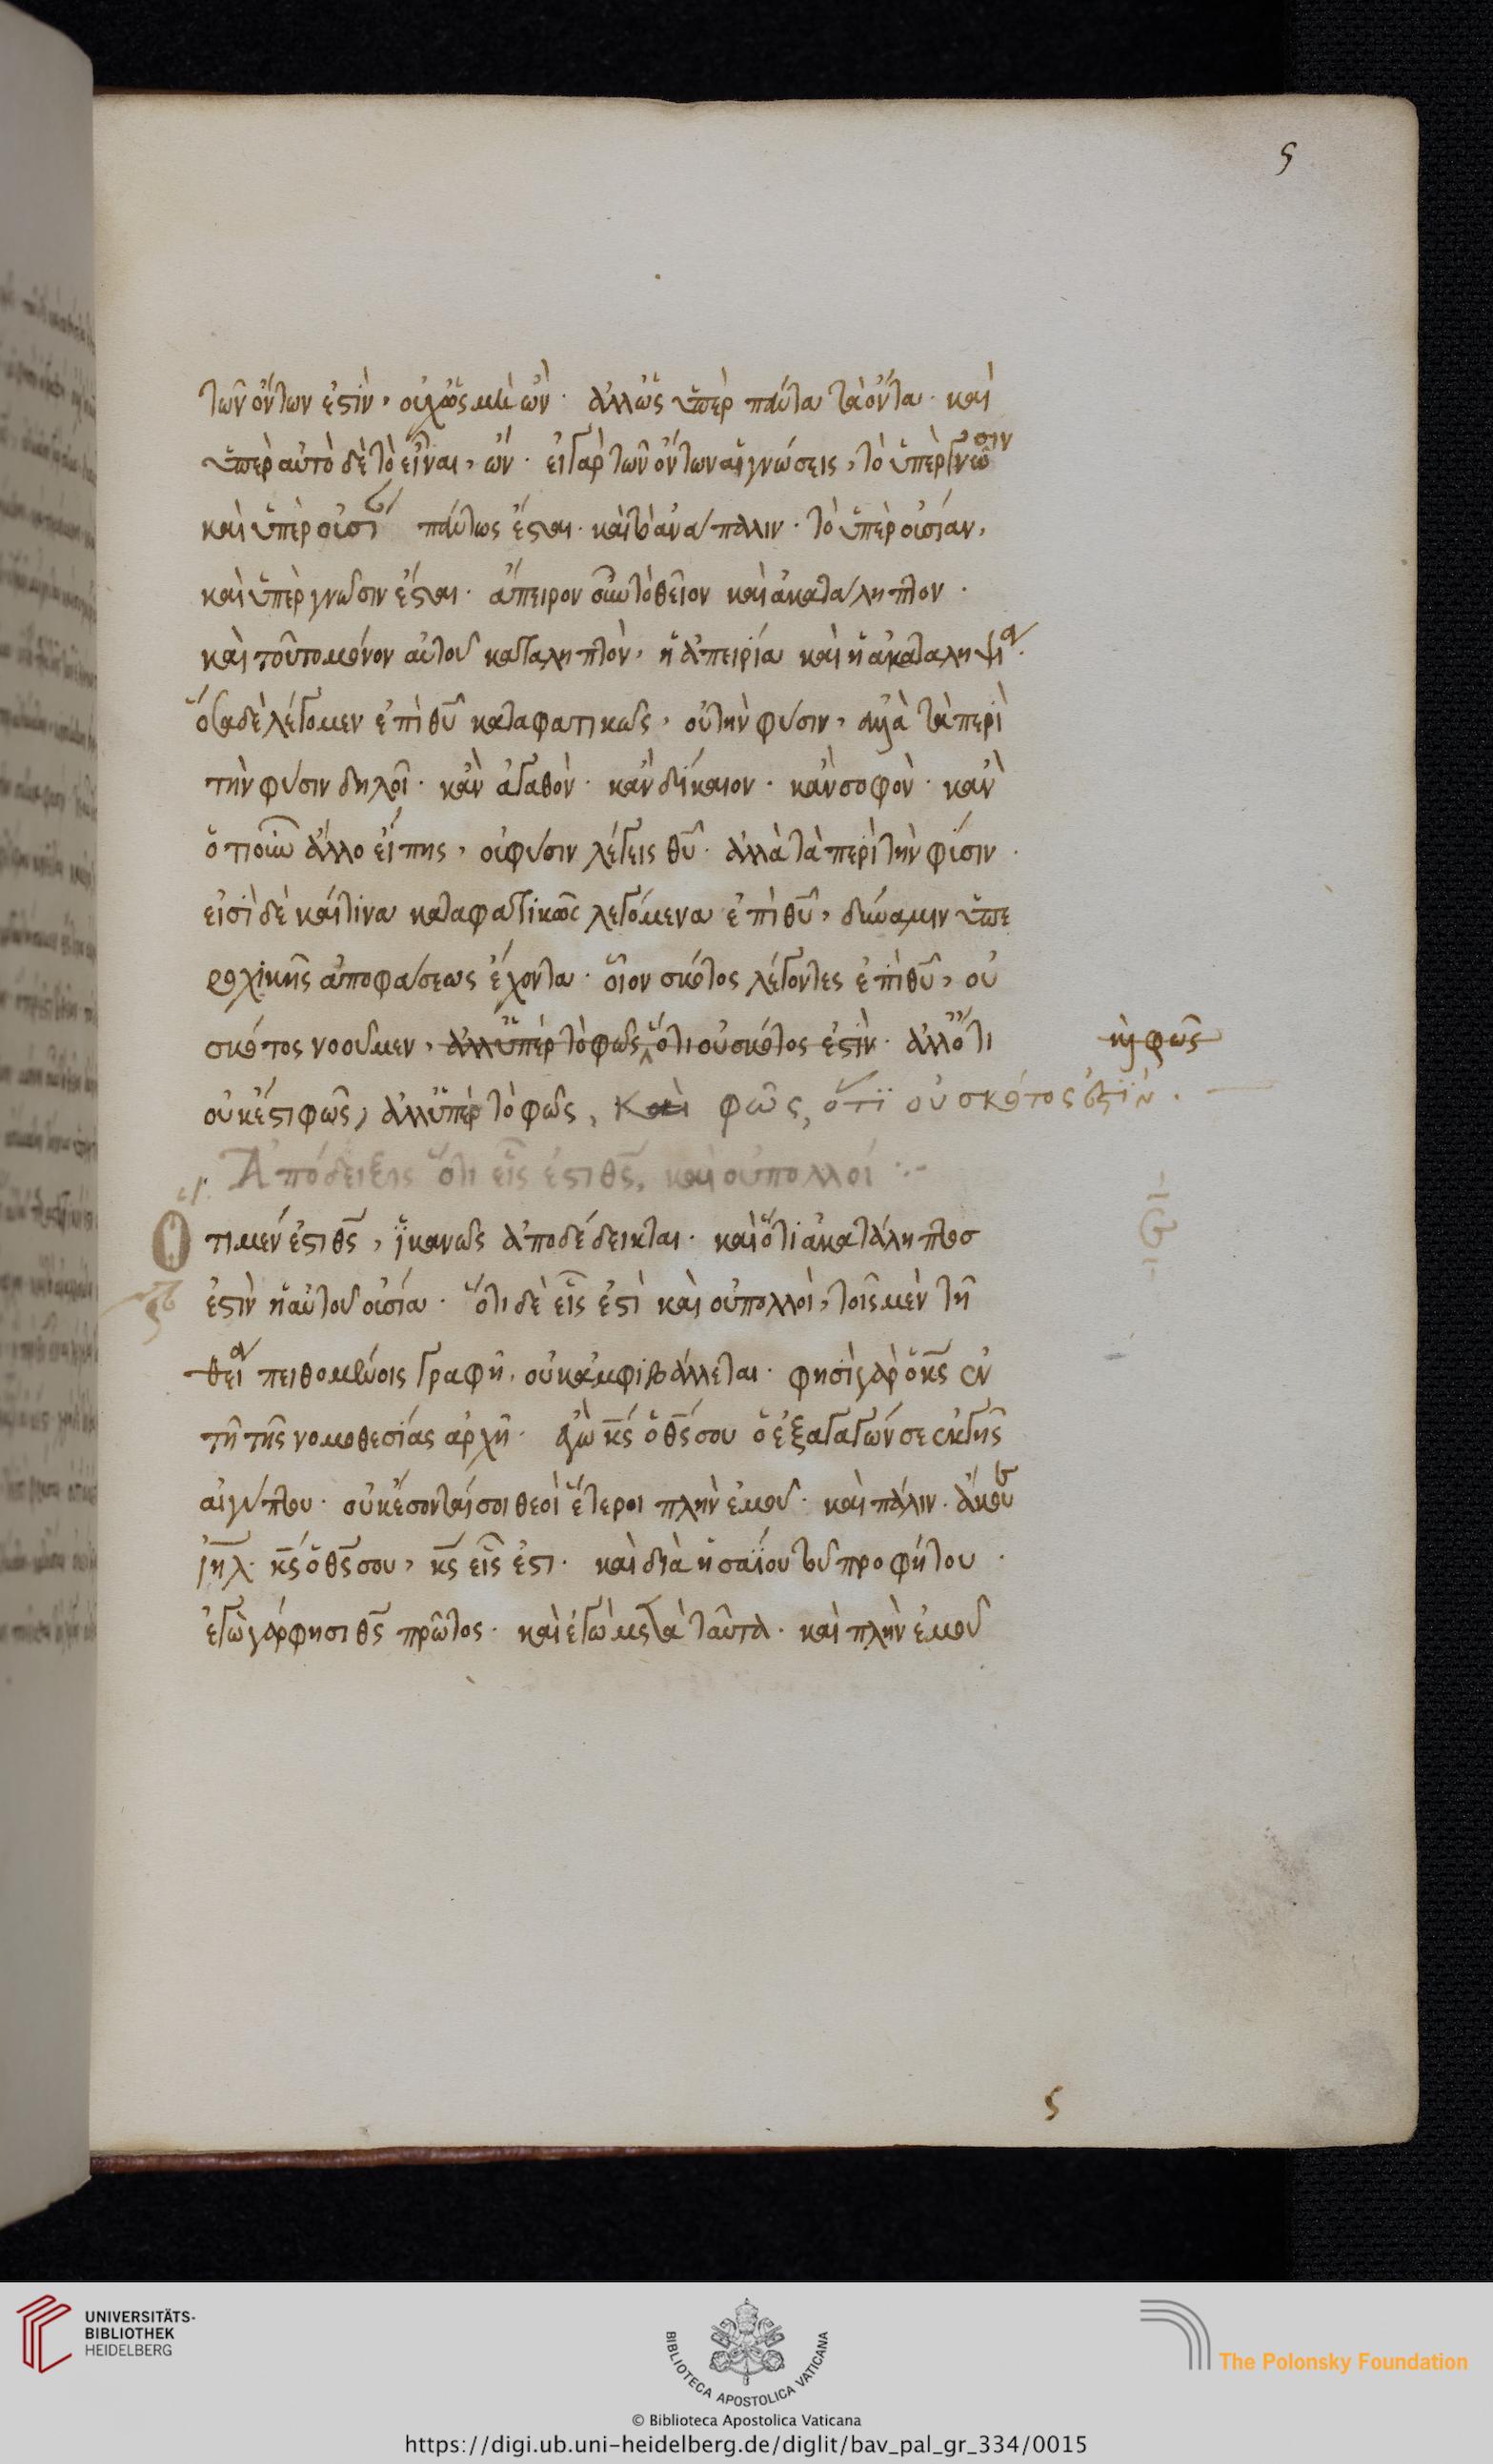 5
τῶν ὄντων ἐστὶν, οὐχ ὡς μὴ ὢν· ἀλλ' ὡς ὑπὲρ πάντα τὰ ὄντα· καὶ
ὑπὲρ αὐτὸ δὲ τὸ εἶναι, ὤν· εἰ γὰρ τῶν ὄντων αἱ γνώσεις, τὸ ὑπὲρ γνῶσιν
καὶ ὑπὲρ οὐσίαν πάντως ἔσται· καὶ τὸ ἀνάπαλιν· τὸ ὑπὲρ οὐσίαν,
καὶ ὑπὲρ γνῶσιν ἔσται· ἄπειρον οὖν τὸ θεῖον καὶ ἀκατάληπτον·
καὶ τοῦτο μόνον αὐτοῦ καταληπτὸν, ἡ ἀπειρία καὶ ἡ ἀκαταληψία·
ὅσα δὲ λέγομεν ἐπὶ θῦ καταφατικῶς, οὐ τὴν φύσιν, ἀλλὰ τὰ περὶ
τὴν φύσιν δηλοῖ· κἂν ἀγαθὸν· κἂν δίκαιον· κἂν σοφὸν· κἂν
ὅτι οὖν ἄλλο εἴπης, οὐ φύσιν λέγεις θῦ· ἀλλὰ τὰ περὶ τὴν φύσιν·
εἰσὶ δὲ καί τινα καταφατικῶς λεγόμενα ἐπὶ θῦ, δύναμιν ὑπε
ροχικῆς ἀποφάσεως ἔχοντα· οἷον σκότος λέγοντες ἐπὶ θῦ, οὐ
σκότος νοοῦμεν, ἀλλ' ὑπὲρ τὸ φῶς ὅτι οὐ σκότος ἐστὶν· ἀλλ' ὅτι
καὶ φῶς
οὐκ ἔστι φῶς, ἀλλ' ὑπὲρ τὸ φῶς, καὶ φῶς, ὅτϊ οὐ σκότος ἐστϊν.
Ἀπόδειξις ὅτι εἷς ἐστι θς, καὶ οὐ πολλοί :-
Ὅτι μέν ἐστι θς, ἱκανῶς ἀποδέδεικται· καὶ ὅτι ἀκατάληπτος
ἐστὶν ἡ αὐτοῦ οὐσία· ὅτι δὲ εἷς ἐστὶ καὶ οὐ πολλοὶ, τοῖς μὲν τῆ
θεία πειθομένοις γραφῆ, οὐκ ἀμφιβάλλεται· φησὶ γὰρ ὁ κς ἐν
τῆ τῆς νομοθεσίας ἀρχῆ· ἐγὼ κς ὁ θς σου ὁ ἐξαγαγών σε ἐκ γῆς
αἰγύπτου· οὐκ ἔσονταί σοι θεοὶ ἕτεροι πλὴν ἐμοῦ· καὶ πάλιν· ἄκουε
ιηλ· κς ὁ θς σου, κς εἷς ἐστι· καὶ διὰ ἡσαΐου τοῦ προφήτου·
ἐγὼ γάρ φησι θς πρῶτος· καὶ ἐγὼ μετὰ ταῦτα· καὶ πλὴν ἐμοῦ
UNIVERSITÄTS-
BIBLIOTHEK
HEIDELBERG
BIBLIOTECA APOSTOLICA VATICANA
The Polonsky Foundation
© Biblioteca Apostolica Vaticana
https://digi.ub.uni-heidelberg.de/diglit/bav_pal_gr_334/0015